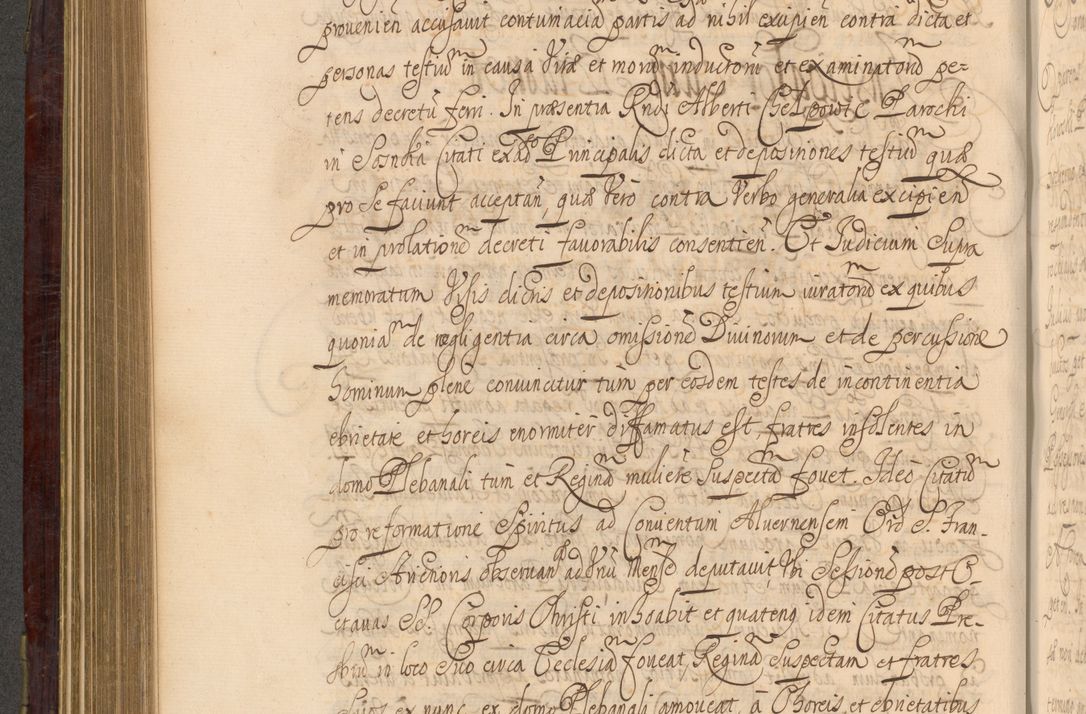 provenien accusavit contumacia partis ad nihil excipien contra dicta et
personas testiũ in causa Vitæ et morũ inductorũ et examinatorũ pe-
tens decretũ ferri. In præsentia Rndi Alberti Chełpowic Parochi
in Sosnka Citati ex adᵒ Principalis dicta et depositiones testiũ quæ
pro se faciunt acceptan, quæ vero contra verbo generalia excipien
et in prolationẽ decreti favorabilis consentien. Et Judicium supra
memoratum Visis dictis et depositionibus testium iuratorũ ex quibus
quoniã de negligentia circa omissionẽ Divinorum et de percussione
hominum plene convincitur tum per eosdem testes de incontinentia
ebrietate et choreis enormiter diffamatus est, fratres insolentes in
domo Plebanali tum et Reginã mulierẽ suspectã fovet. Ideo Citatũ
pro reformatione Spiritus ad Conventum Alvernensem Ord S. Fran-
cisci Strictioris observan ad unũ Mensẽ deputavit, ubi Sessionẽ post O-
ctavas SS. Corporis Christi inchoabit et quatenq idem Citatus Pre-
sbiũ in loco suo circa Ecclesiã foveat, Reginã suspectam et fratres
suos ex nunc ex domo Plebanali amoveat, à Choreis et ebrietatibus